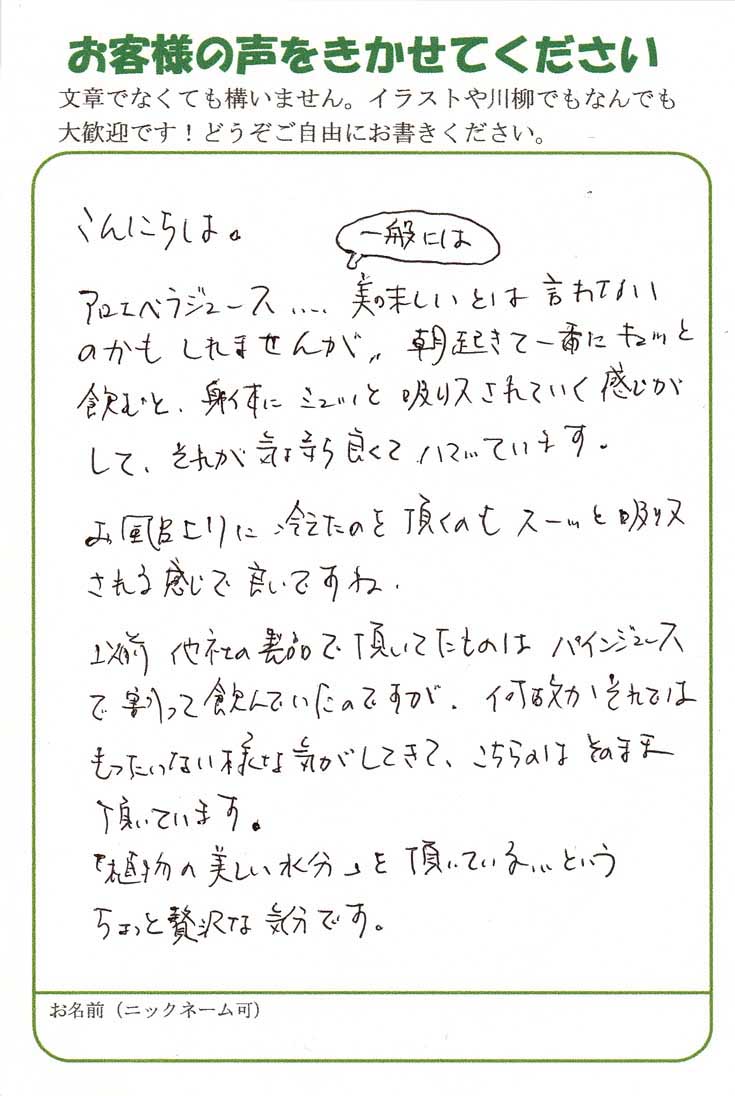 お客様の声をきかせてください
文章でなくても構いません。イラストや川柳でもなんでも
大歓迎です！どうぞご自由にお書きください。
こんにちは。
一般には
アロエベラジュース.... 美味しいとは言わない
のかもしれませんが,, 朝起きて一番にキュッと
飲むと、身体にミューッと吸収されていく感じが
して、それが気持ち良くてハマっています。
お風呂上りに冷えたのを頂くのもスーッと吸収
される感じで良いですね.
以前他社の製品で頂いてたものはパインジュース
で割って飲んでいたのですが、何故かそれでは
もったいない様な気がしてきて、こちらのはそのまま
頂いています。
『植物の美しい水分』を頂いている...という
ちょっと贅沢な気分です。
お名前（ニックネーム可）